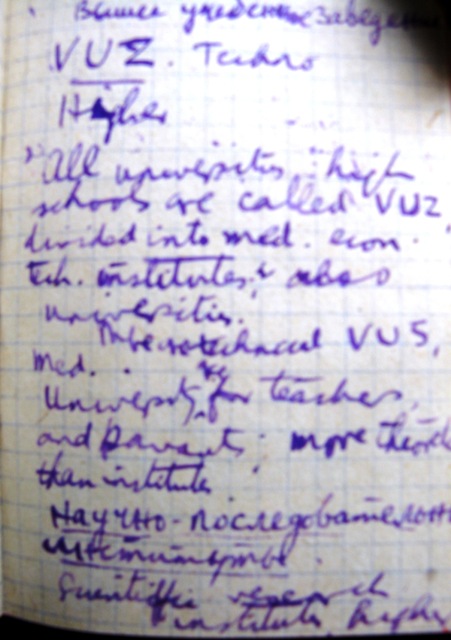 Высшее учебное Заведение
VUZ. Techno
Higher
"All universities, high
schools are called VUZ,
divided into med. econ.
tech. institutes & also
universities.
technical VUS,
med.
University for teachers,
and more
than institutes
Научно-последователь
институты.
Scientific research
institutes, higher